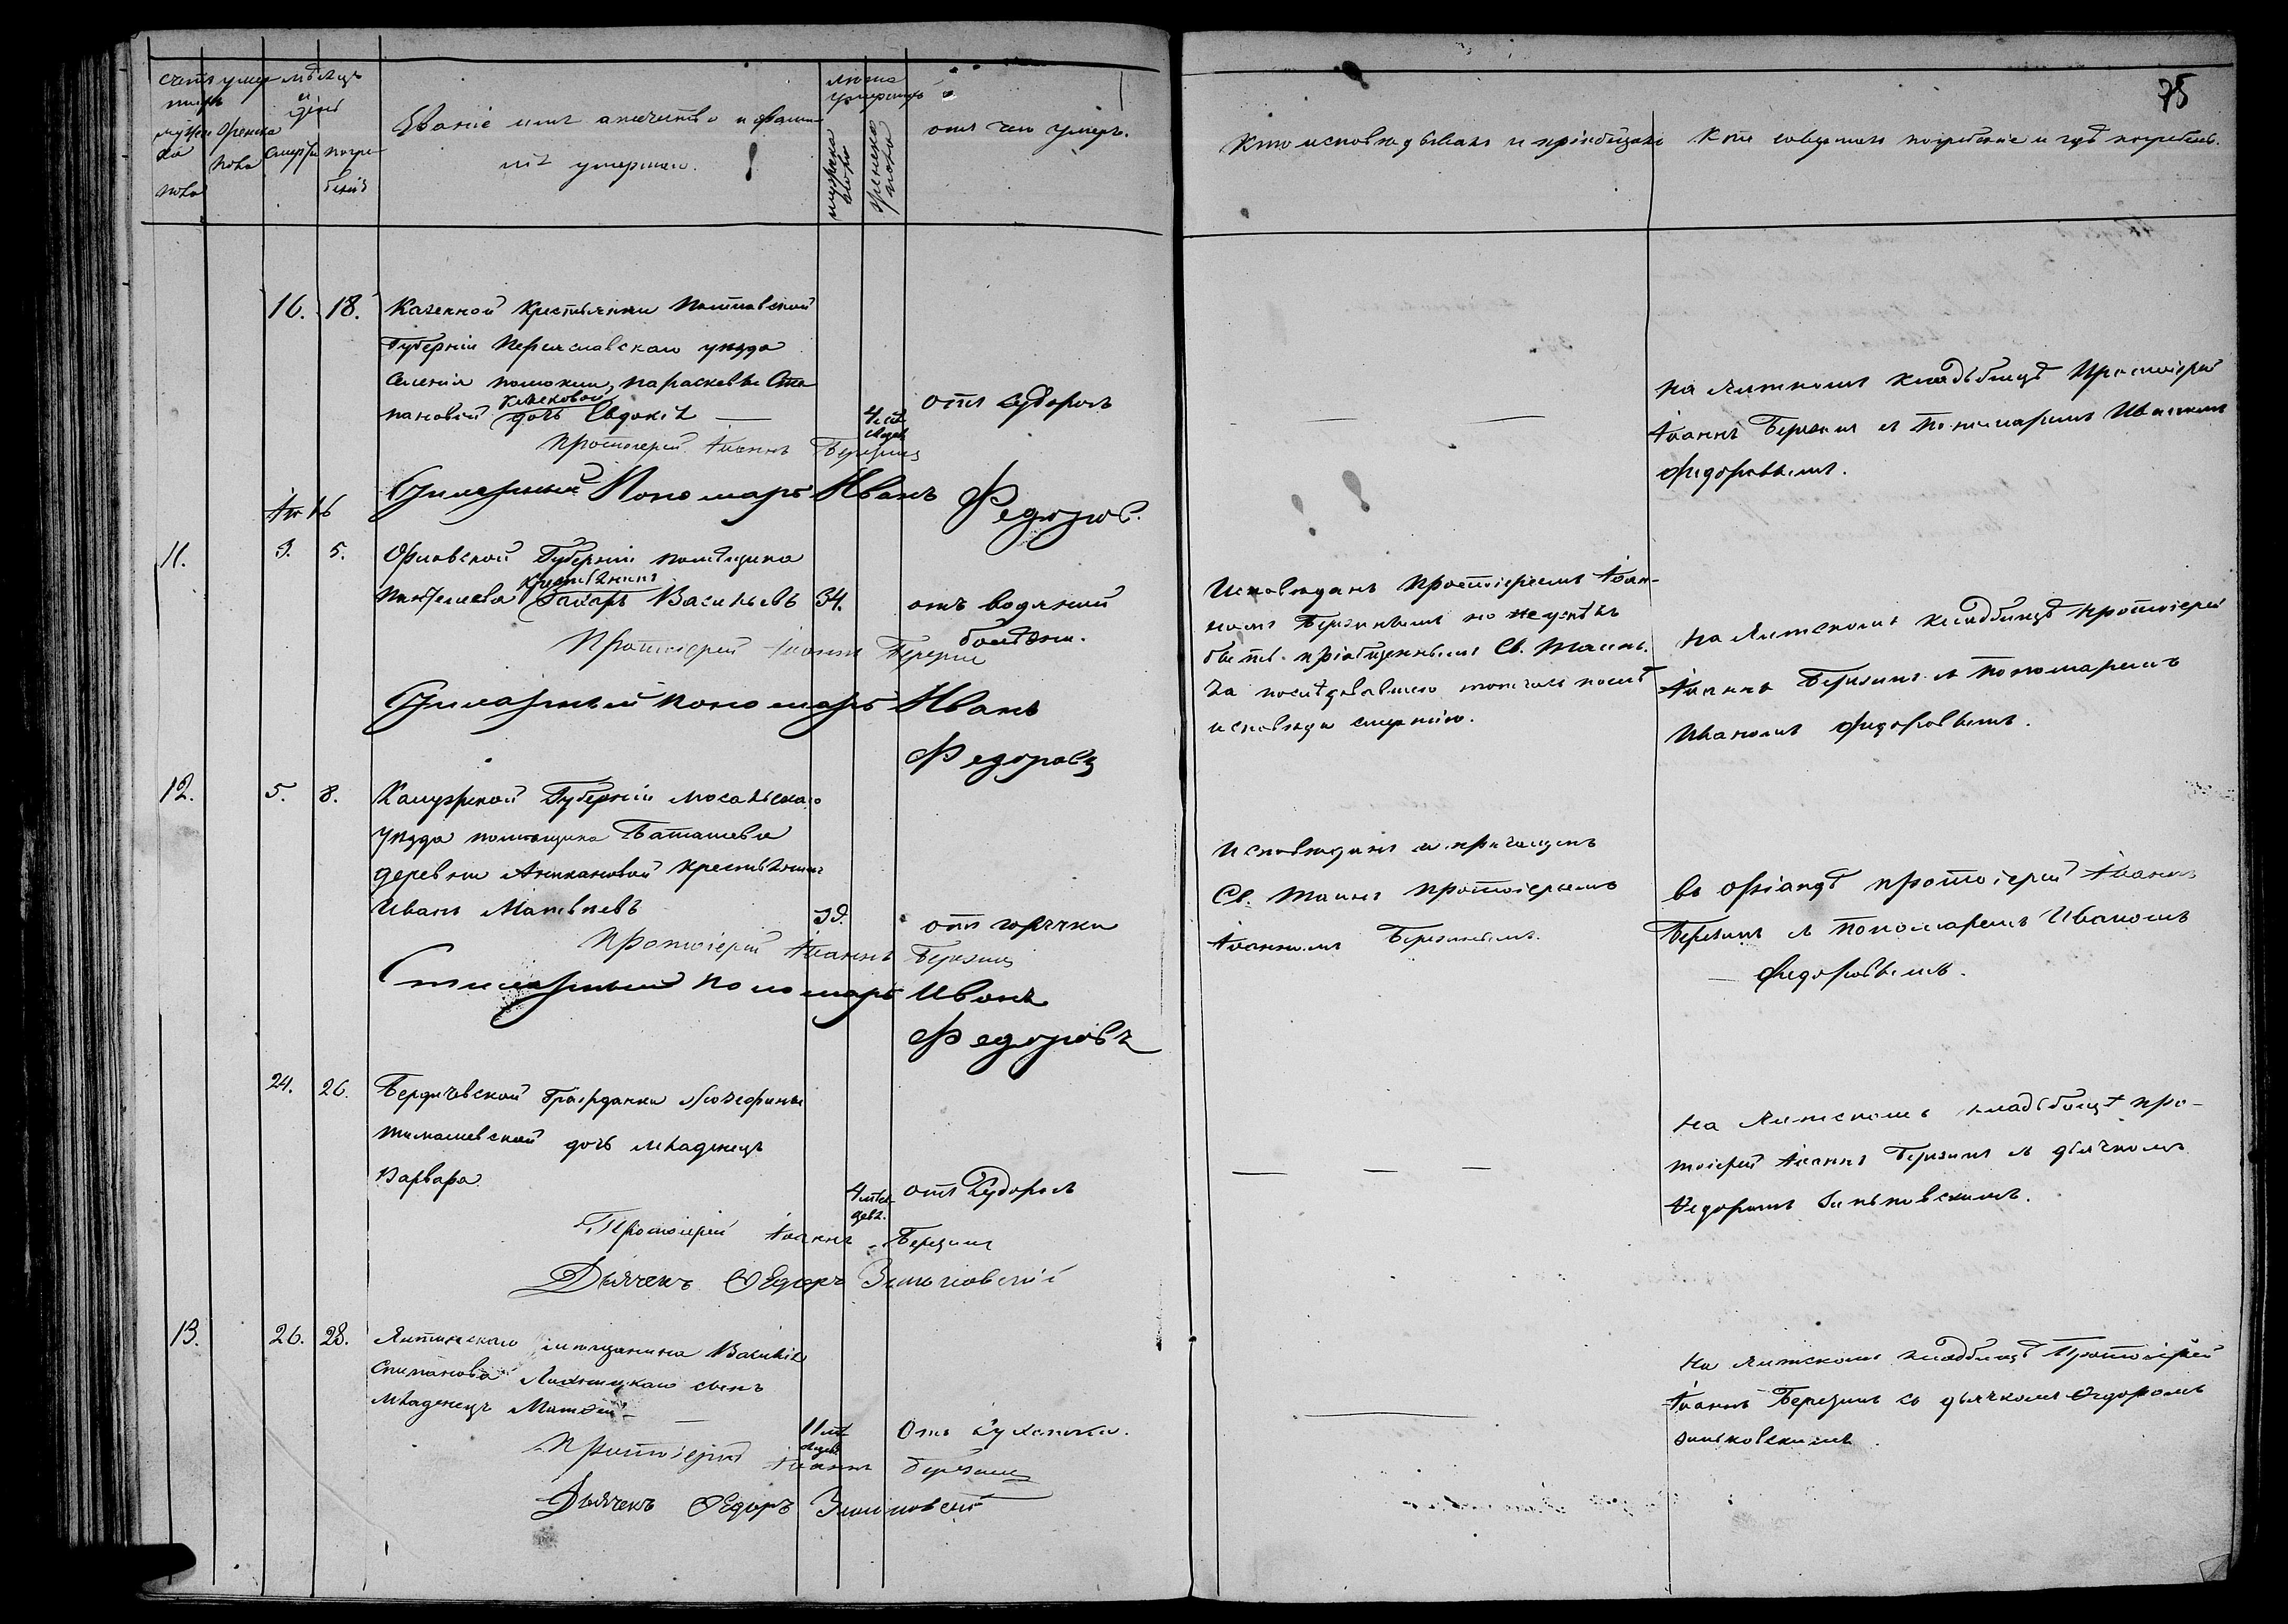 75
счетъ умер мѣсяцъ
шихъ и день
мужес женска
ка пола смерти погре
пола бенія
Званіе имя отчество и фами
лія умершаго.
лета
умершихъ
мужеска
пола
женска
пола
отъ чего умеръ.
Кто исповѣдывалъ и пріобщалъ
Кто совершалъ погребеніе и гдѣ погребенъ.
16. 18. Казенной крестьянки Полтавской
Губерніи Переяславскаго уѣзда
селенія Параскевы Сте
пановой дочь Евдокія
4 мѣс
отъ судорогъ
Протоіерей Іоаннъ Березинъ
Пономарь Иванъ Федоровъ.
На Ялтскомъ кладбищѣ Протоіерей
Іоаннъ Березинъ съ Пономаремъ Иваномъ
Федоровымъ.
11. 3. 5. Орловской Губерніи помѣщика
крестьянинъ
Захаръ Васильевъ 34. отъ водяной
болѣзни.
Протоіерей Іоаннъ Березинъ
пономарь Иванъ
Федоровъ
Исповѣданъ Протоіереемъ Іоан-
номъ Березинымъ но не успѣлъ
быть пріобщеннымъ Св. Таинъ.
За послѣдовавшею тотчасъ послѣ
исповѣди смертію.
На Ялтскомъ кладбищѣ Протоіерей
Іоаннъ Березинъ съ пономаремъ
Иваномъ Федоровымъ.
12. 5. 8. Калужской Губерніи Мосальскаго
уѣзда помѣщика Баташева
деревни крестьянинъ
Иванъ Матвѣевъ
отъ горячки
Протоіерей Іоаннъ Березинъ
пономарь Иванъ
Федоровъ
Исповѣданъ и причащенъ
Св. Таинъ Протоіереемъ
Іоанномъ Березинымъ.
въ Оріандѣ протоіерей Іоаннъ
Березинъ съ пономаремъ Иваномъ
Федоровымъ.
24. 26. Бердичевской Гражданки Іозефины
дочь младенецъ
Варвара
4 мѣс.
отъ судорогъ
Протоіерей Іоаннъ Березинъ
Дьячекъ Ѳедоръ Зиньковскій
На Ялтскомъ кладбищѣ про-
тоіерей Іоаннъ Березинъ съ дьячкомъ
Ѳедоромъ Зиньковскимъ.
13. 26. 28. Ялтинскаго мѣщанина Василія
Степанова сынъ
младенецъ Матвей
11 мѣ
Отъ сухотки.
Протоіерей Іоаннъ Березинъ
Дьячекъ Ѳедоръ Зиньковскій
На Ялтскомъ кладбищѣ Протоіерей
Іоаннъ Березинъ съ дьячкомъ Ѳедоромъ
Зиньковскимъ.